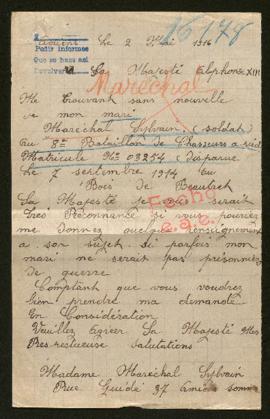 16178
Pedir informes
Le 2 Mai 1916
Sa Majesté Alphonse XIII
Maréchal
Me trouvant sans nouvelle
de mon mari
Maréchal Sylvain (soldat)
au 8me Bataillon de Chasseurs à pied
Matricule No 03254 disparue
le 7 septembre 1914 au
Bois de
Sa Majesté je vous serait
Très Reconnaissante si vous pouriez
me donnez quelque renseignement
a son sujet si parfois mon
mari ne serait pas prisonnier
de guerre
Comptant que vous voudrez
bien prendre ma demande
En Considération
Veuillez Agréer Sa Majesté Mes
Respectueuse Salutations
Madame Maréchal Sylvain
Rue 37 Amiens Somme